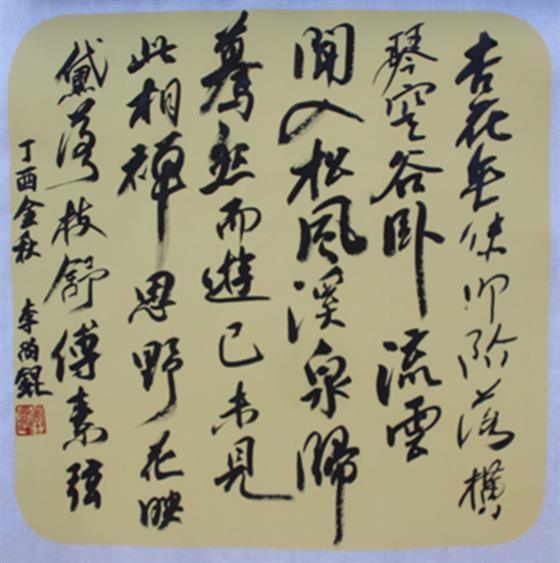 杏花無叩阶落横
琴空谷卧流雲
聞入松風溪泉歸
驀然而遊已未見
此相禅思野花映
黛落枝舒傅素弦
丁酉金秋 李尚錕